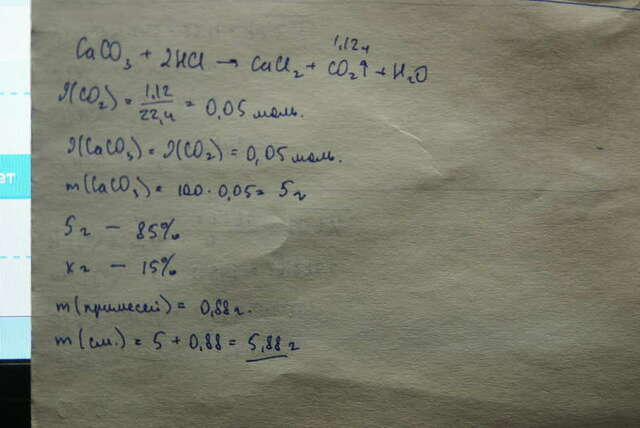 1,12 л
CaCO₃ + 2HCl → CaCl₂ + CO₂↑ + H₂O
ν(CO₂) = 1,12/22,4 = 0,05 моль.
ν(CaCO₃) = ν(CO₂) = 0,05 моль.
m(CaCO₃) = 100 · 0,05 = 5 г
5 г — 85%
x г — 15%
m(примесей) = 0,88 г.
m(см.) = 5 + 0,88 = 5,88 г
ет